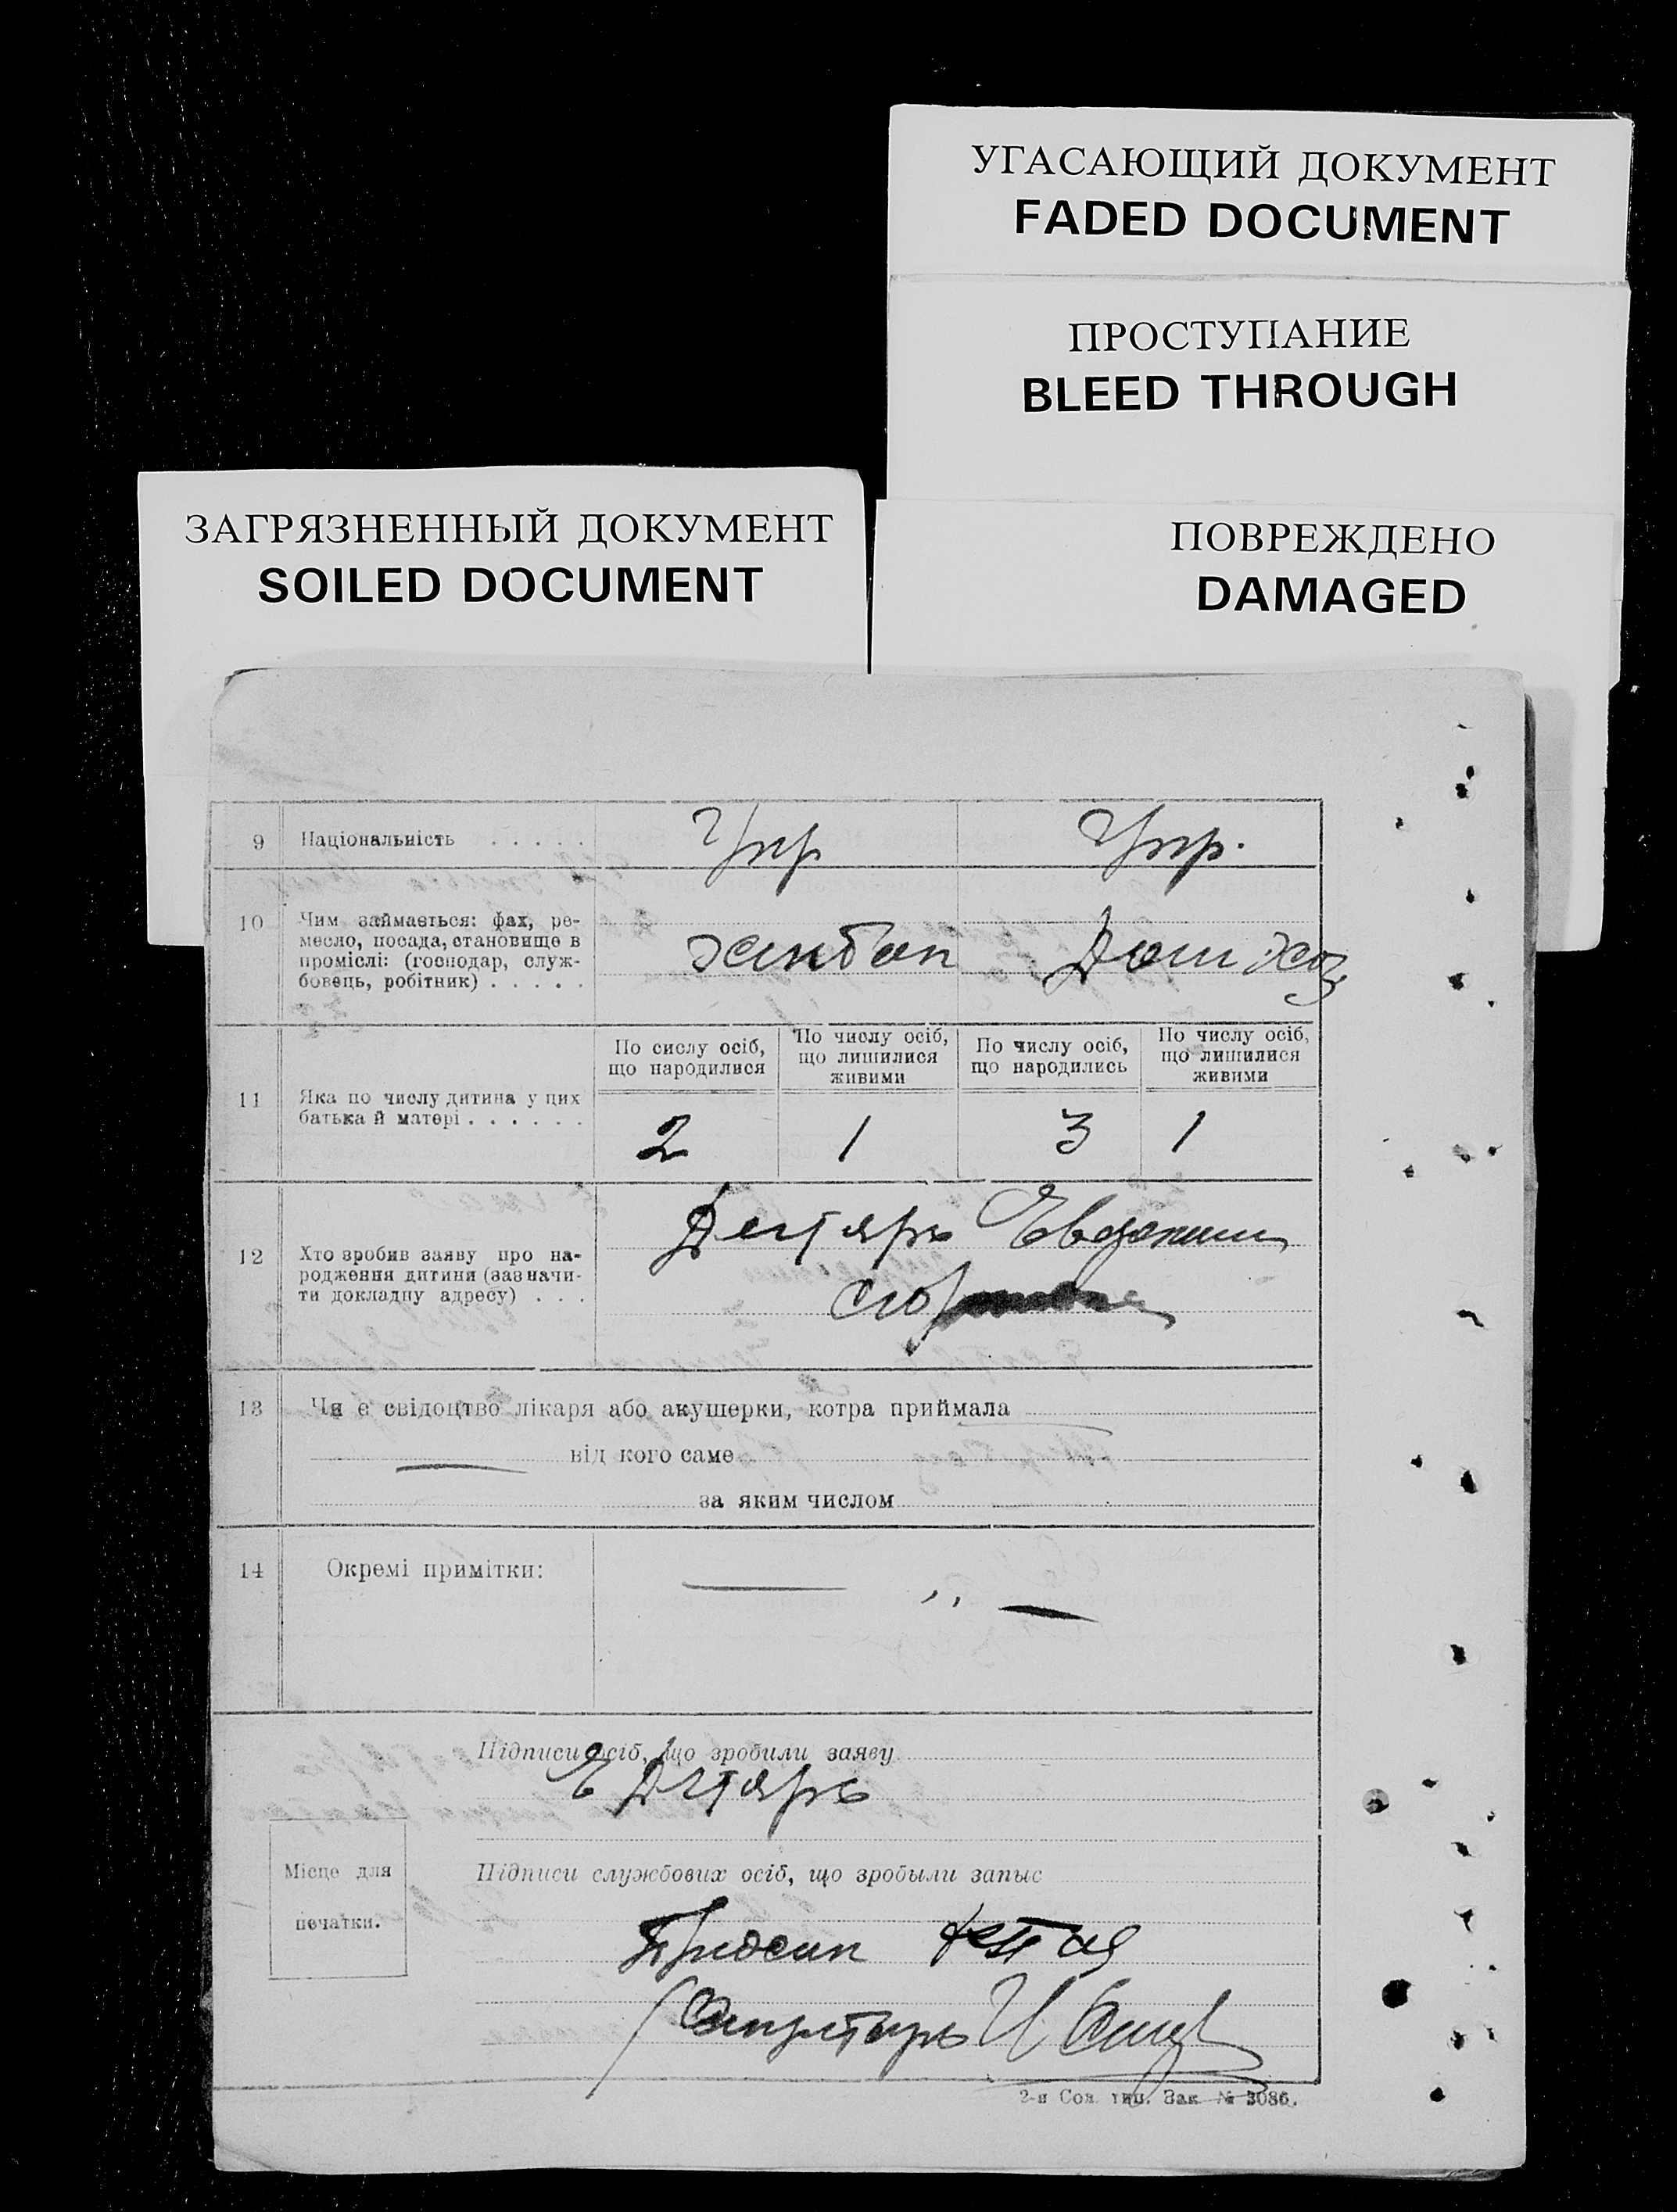 УГАСАЮЩИЙ ДОКУМЕНТ
FADED DOCUMENT
ПРОСТУПАНИЕ
BLEED THROUGH
ЗАГРЯЗНЕННЫЙ ДОКУМЕНТ
SOILED DOCUMENT
ПОВРЕЖДЕНО
DAMAGED
9 Національність . . . . . Укр Укр.
10 Чим займається: фах, ре-
месло, посада, становище в
проміслі: (господар, служ-
бовець, робітник) . . . . .
Дом хоз
По сислу осіб,
що народилися
По числу осіб,
що лишилися
живими
По числу осіб,
що народились
По числу осіб,
що лишилися
живими
11 Яка по числу дитина у цих
батька й матері . . . . . .
2 1 3 1
12 Хто зробив заяву про на-
родження дитини (зазначи-
ти докладну адресу) . . .
Дегтярь
13 Чи є свідоцтво лікаря або акушерки, котра приймала
від кого саме
за яким числом
14 Окремі примітки:
Підписи осіб, що зробили заяву
Е Дегтярь
Місце для
печатки.
Підписи службових осіб, що зробыли запыс
2-я Сов. тип. Зак № 3086.